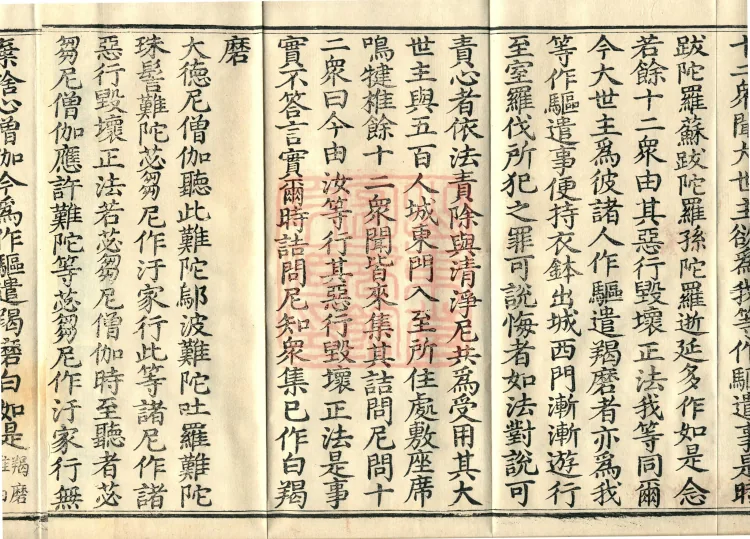 十二衆聞大世主欲爲我等作驅遣事是時
跋陀羅蘇跋陀羅孫陀羅逝延多作如是念
若餘十二衆由其惡行毀壞正法我等同爾
今大世主爲彼諸人作驅遣羯磨者亦爲我
等作驅遣事便持衣鉢出城西門漸漸遊行
至室羅伐所犯之罪可說悔者如法對說可
責心者依法責除與清淨尼共爲受用其大
世主與五百人城東門入至所住處敷座席
鳴犍椎餘十二衆聞皆來集其詰問尼問十
二衆曰今由汝等行其惡行毀壞正法是事
實不答言實爾時詰問尼知衆集已作白羯
磨
大德尼僧伽聽此難陀鄔波難陀吐羅難陀
珠髻難陀苾芻尼作汙家行此等諸尼作諸
惡行毀壞正法若苾芻尼僧伽時至聽者苾
芻尼僧伽應許難陀等苾芻尼作汙家行無
棄捨心僧伽今爲作驅遣羯磨白如是羯磨